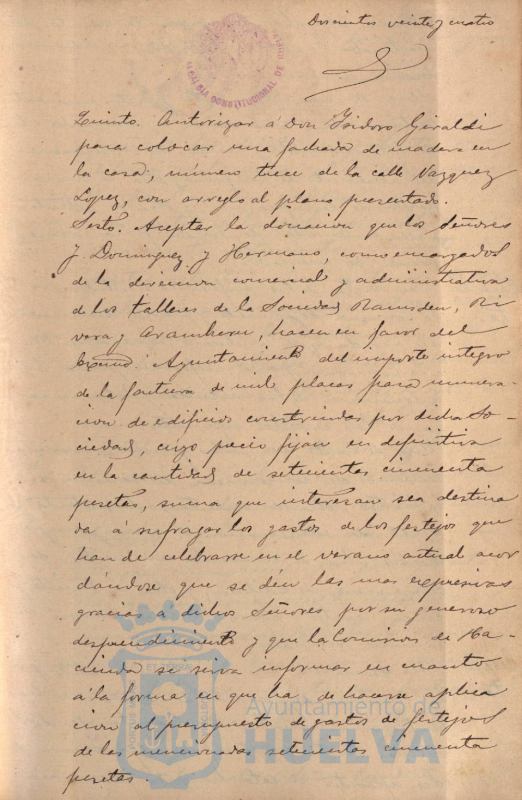 Doscientos veinte y cuatro
ALCALDIA CONSTITUCIONAL DE
Quinto. Autorizar á Don Isidoro Giraldi
para colocar una fachada de madera en
la casa, número trece de la calle Vazquez
Lopez, con arreglo al plano presentado.
Sesto. Aceptar la donacion que los Señores
J. Dominguez y Hermano, como encargados
de la direccion comercial y administrativa
de los talleres de la Sociedad Ramsden, Ri
vera y Aramburu, hacen en favor del
Excmo. Ayuntamiento del importe integro
de la factura de mil placas para numera-
cion de edificios construidas por dicha So-
ciedad, cuyo precio fijan en definitiva
en la cantidad de setecientas cincuenta
pesetas, suma que interesan sea destina
da á sufragar los gastos de los festejos que
han de celebrarse en el verano actual acor
dándose que se dén las mas expresivas
gracias á dichos Señores por su generoso
desprendimiento y que la Comision de Ha-
cienda se sirva informar en cuanto
á la forma en que ha de hacerse aplica
cion al presupuesto de gastos de festejos
de las mencionadas setecientas cincuenta
pesetas.
Ayuntamiento de
HUELVA